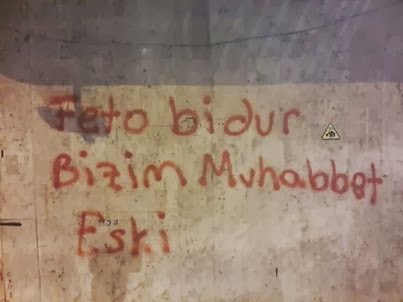 Feto bi dur
Bizim Muhabbet
Eski